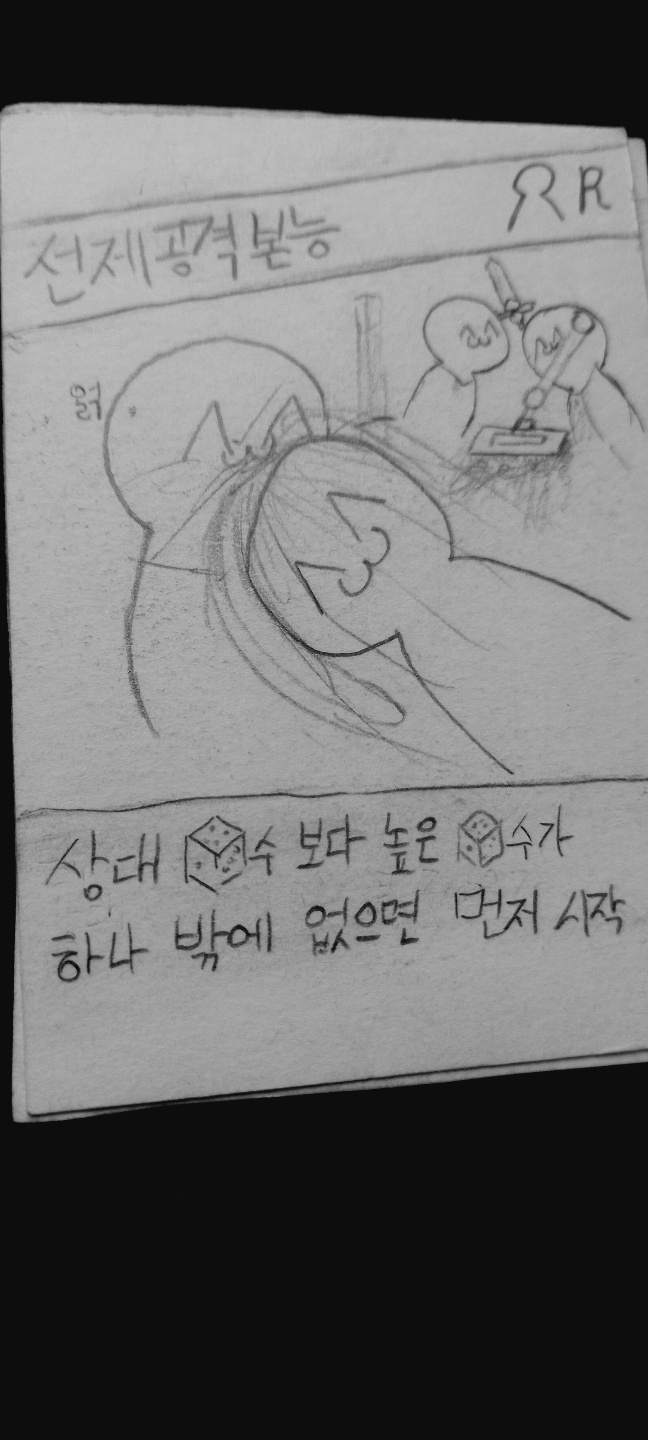 선제공격본능 R
윽
상대 수 보다 높은 수가
하나 밖에 없으면 먼저 시작